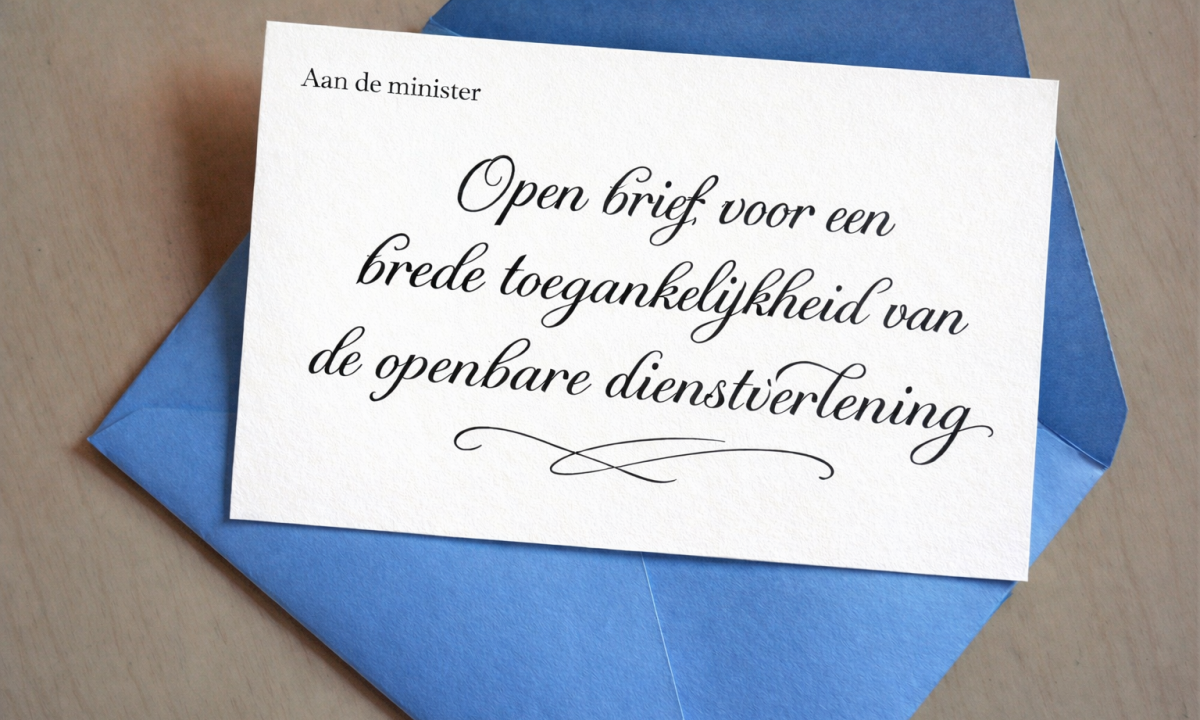 Aan de minister
Open brief voor een
brede toegankelijkheid van
de openbare dienstverlening